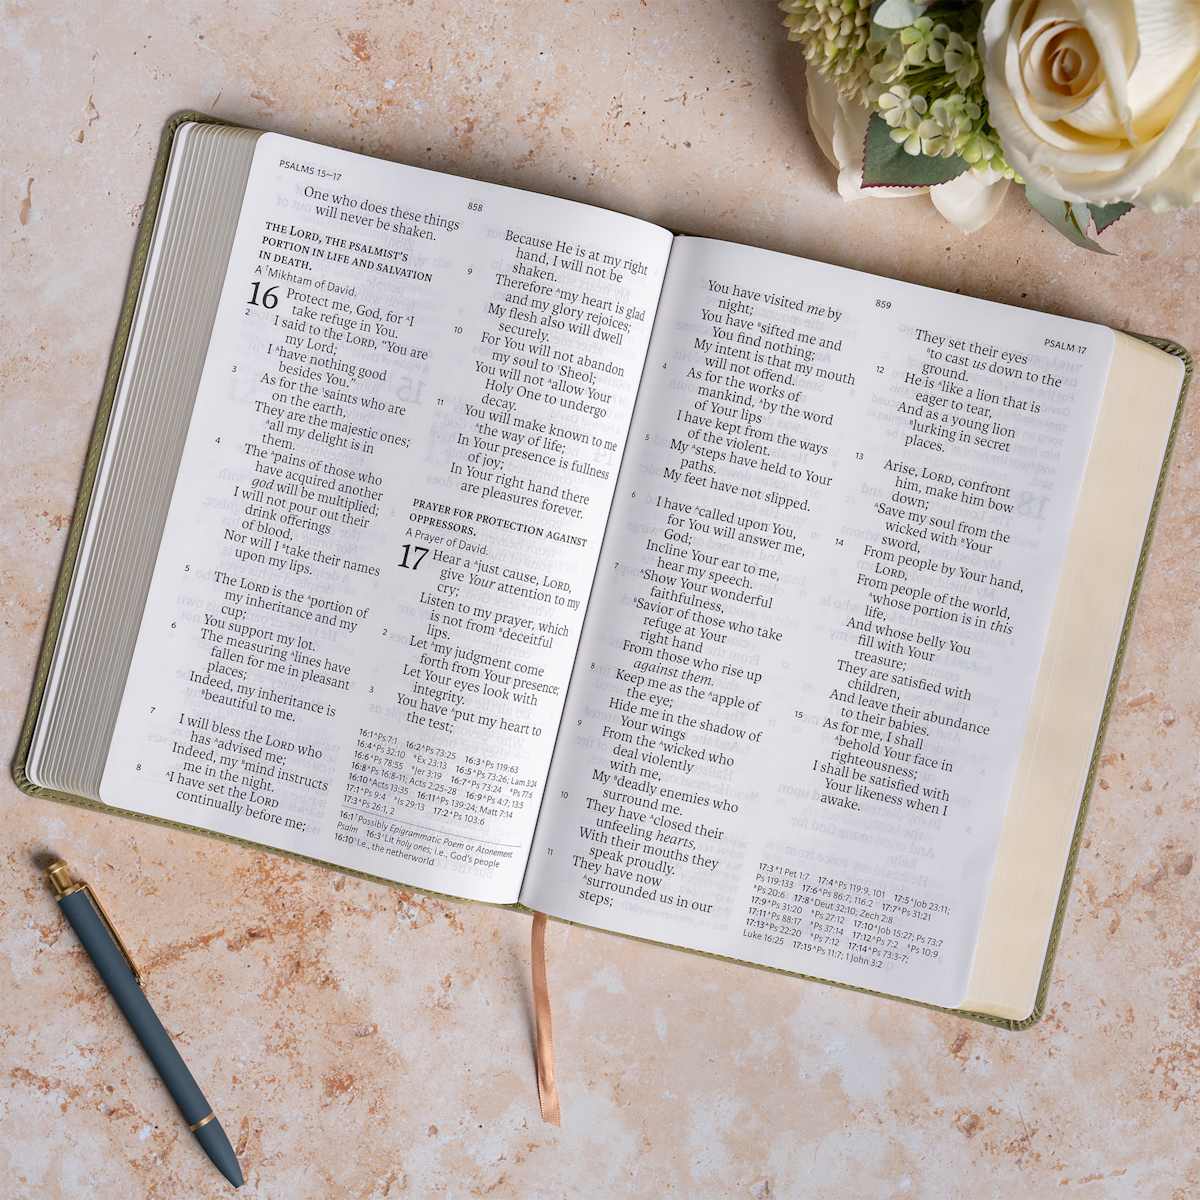 PSALMS 15–17
858
One who does these things
will never be shaken.
THE LORD, THE PSALMIST'S
PORTION IN LIFE AND SALVATION
IN DEATH.
A ¹Mikhtam of David.
16 Protect me, God, for ᴬI
take refuge in You.
2 I said to the LORD, “You are
my Lord;
I ᴬhave nothing good
besides You.”
3 As for the ¹saints who are
on the earth,
They are the majestic ones;
ᴬall my delight is in
them.
4 The ᴬpains of those who
have acquired another
god will be multiplied;
I will not pour out their
drink offerings
of blood,
Nor will I ᴮtake their names
upon my lips.
5 The LORD is the ᴬportion of
my inheritance and my
cup;
You support my lot.
6 The measuring ᴬlines have
fallen for me in pleasant
places;
Indeed, my inheritance is
ᴮbeautiful to me.
7 I will bless the LORD who
has ᴬadvised me;
Indeed, my ᴮmind instructs
me in the night.
8 ᴬI have set the LORD
continually before me;
Because He is at my right
hand, I will not be
shaken.
9 Therefore ᴬmy heart is glad
and my glory rejoices;
My flesh also will dwell
securely.
10 For You will not abandon
my soul to ¹Sheol;
You will not ᴬallow Your
Holy One to undergo
decay.
11 You will make known to me
ᴬthe way of life;
In Your presence is fullness
of joy;
In Your right hand there
are pleasures forever.
PRAYER FOR PROTECTION AGAINST
OPPRESSORS.
A Prayer of David.
17 Hear a ᴬjust cause, LORD,
give Your attention to my
cry;
Listen to my prayer, which
is not from ᴮdeceitful
lips.
2 Let ᴬmy judgment come
forth from Your presence;
Let Your eyes look with
integrity.
3 You have ᴬput my heart to
the test;
16:1 ᴬPs 7:1 16:2 ᴬPs 73:25 16:3 ᴬPs 119:63
16:4 ᴬPs 32:10 ᴮEx 23:13 16:5 ᴬPs 73:26; Lam 3:24
16:6 ᴬPs 78:55 ᴮJer 3:19 16:7 ᴬPs 73:24 ᴮPs 77:6
16:8 ᴬPs 16:8-11; Acts 2:25-28 16:9 ᴬPs 4:7; 13:5
16:10 ᴬActs 13:35 16:11 ᴬPs 139:24; Matt 7:14
17:1 ᴬPs 9:4 ᴮIs 29:13 17:2 ᴬPs 103:6
17:3 ᴬPs 26:1, 2
16:1 ¹Possibly Epigrammatic Poem or Atonement
Psalm 16:3 ¹Lit holy ones; i.e., God's people
16:10 ¹I.e., the netherworld
859
PSALM 17
You have visited me by
night;
You have ᴮsifted me and
You find nothing;
My intent is that my mouth
will not offend.
4 As for the works of
mankind, ᴬby the word
of Your lips
I have kept from the ways
of the violent.
5 My ᴬsteps have held to Your
paths.
My feet have not slipped.
6 I have ᴬcalled upon You,
for You will answer me,
God;
Incline Your ear to me,
hear my speech.
7 ᴬShow Your wonderful
faithfulness,
ᴮSavior of those who take
refuge at Your
right hand
From those who rise up
against them.
8 Keep me as the ᴬapple of
the eye;
Hide me in the shadow of
Your wings
9 From the ᴬwicked who
deal violently
with me,
My ᴮdeadly enemies who
surround me.
10 They have ᴬclosed their
unfeeling hearts,
With their mouths they
speak proudly.
11 They have now
ᴬsurrounded us in our
steps;
They set their eyes
ᴮto cast us down to the
ground.
12 He is ᴬlike a lion that is
eager to tear,
And as a young lion
ᴮlurking in secret
places.
13 Arise, LORD, confront
him, make him bow
down;
ᴬSave my soul from the
wicked with ᴮYour
sword,
14 From people by Your hand,
LORD,
From people of the world,
ᴬwhose portion is in this
life,
And whose belly You
fill with Your
treasure;
They are satisfied with
children,
And leave their abundance
to their babies.
15 As for me, I shall
ᴬbehold Your face in
righteousness;
I shall be satisfied with
Your likeness when I
awake.
17:3 ᴮ1 Pet 1:7 17:4 ᴬPs 119:9, 101 17:5 ᴬJob 23:11;
Ps 119:133 17:6 ᴬPs 86:7; 116:2 17:7 ᴬPs 31:21
ᴮPs 20:6 17:8 ᴬDeut 32:10; Zech 2:8
17:9 ᴬPs 31:20 ᴮPs 27:12 17:10 ᴬJob 15:27; Ps 73:7
17:11 ᴬPs 88:17 ᴮPs 37:14 17:12 ᴬPs 7:2 ᴮPs 10:9
17:13 ᴬPs 22:20 ᴮPs 7:12 17:14 ᴬPs 73:3-7;
Luke 16:25 17:15 ᴬPs 11:7; 1 John 3:2